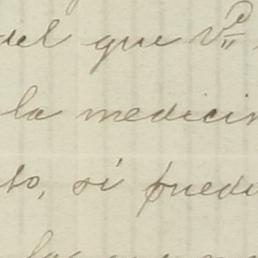 del que Vd
la medicin
to, si puedi